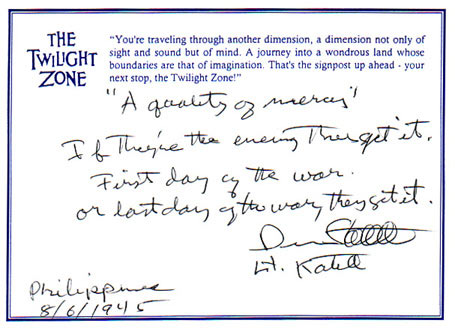 THE
TWILIGHT
ZONE
"You're traveling through another dimension, a dimension not only of
sight and sound but of mind. A journey into a wondrous land whose
boundaries are that of imagination. That's the signpost up ahead - your
next stop, the Twilight Zone!"
"A quality of mercy"
If They're the enemy They get it.
First day of the war.
or last day of the war, they get it.
Lt. Katell
Philippines
8/6/1945